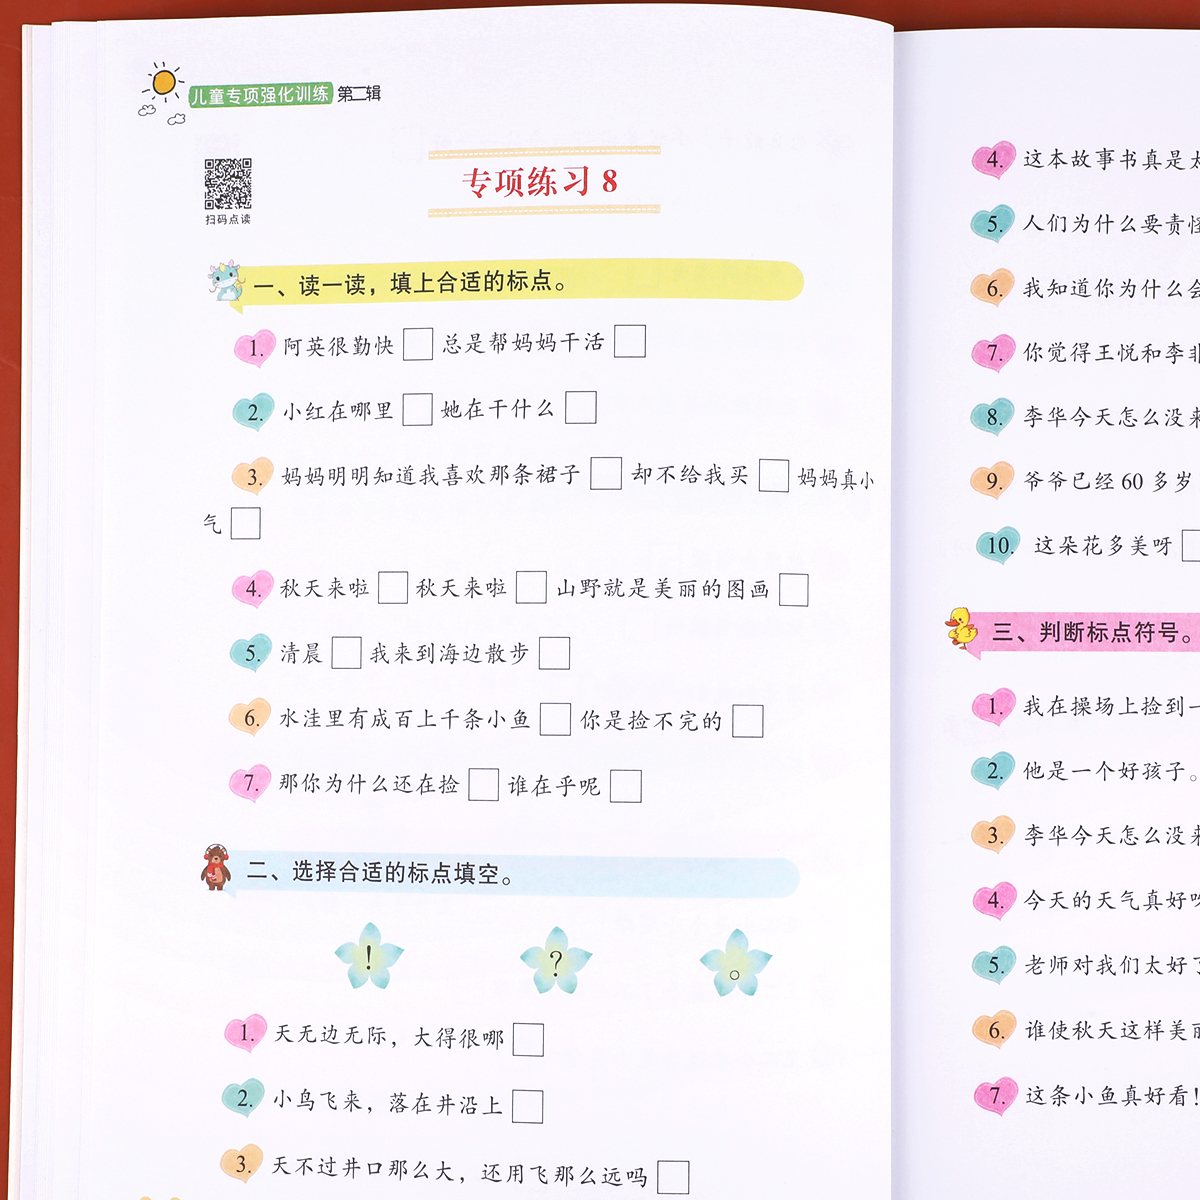 儿童专项强化训练 第二辑
扫码点读
专项练习 8
一、读一读，填上合适的标点。
1. 阿英很勤快□总是帮妈妈干活□
2. 小红在哪里□她在干什么□
3. 妈妈明明知道我喜欢那条裙子□却不给我买□妈妈真小
气□
4. 秋天来啦□秋天来啦□山野就是美丽的图画□
5. 清晨□我来到海边散步□
6. 水洼里有成百上千条小鱼□你是捡不完的□
7. 那你为什么还在捡□谁在乎呢□
二、选择合适的标点填空。
！ ？ 。
1. 天无边无际，大得很哪□
2. 小鸟飞来，落在井沿上□
3. 天不过井口那么大，还用飞那么远吗□
4. 这本故事书真是太
5. 人们为什么要责怪
6. 我知道你为什么会
7. 你觉得王悦和李非
8. 李华今天怎么没来
9. 爷爷已经 60 多岁
10. 这朵花多美呀□
三、判断标点符号。
1. 我在操场上捡到一
2. 他是一个好孩子。
3. 李华今天怎么没来
4. 今天的天气真好呀
5. 老师对我们太好了
6. 谁使秋天这样美丽
7. 这条小鱼真好看！